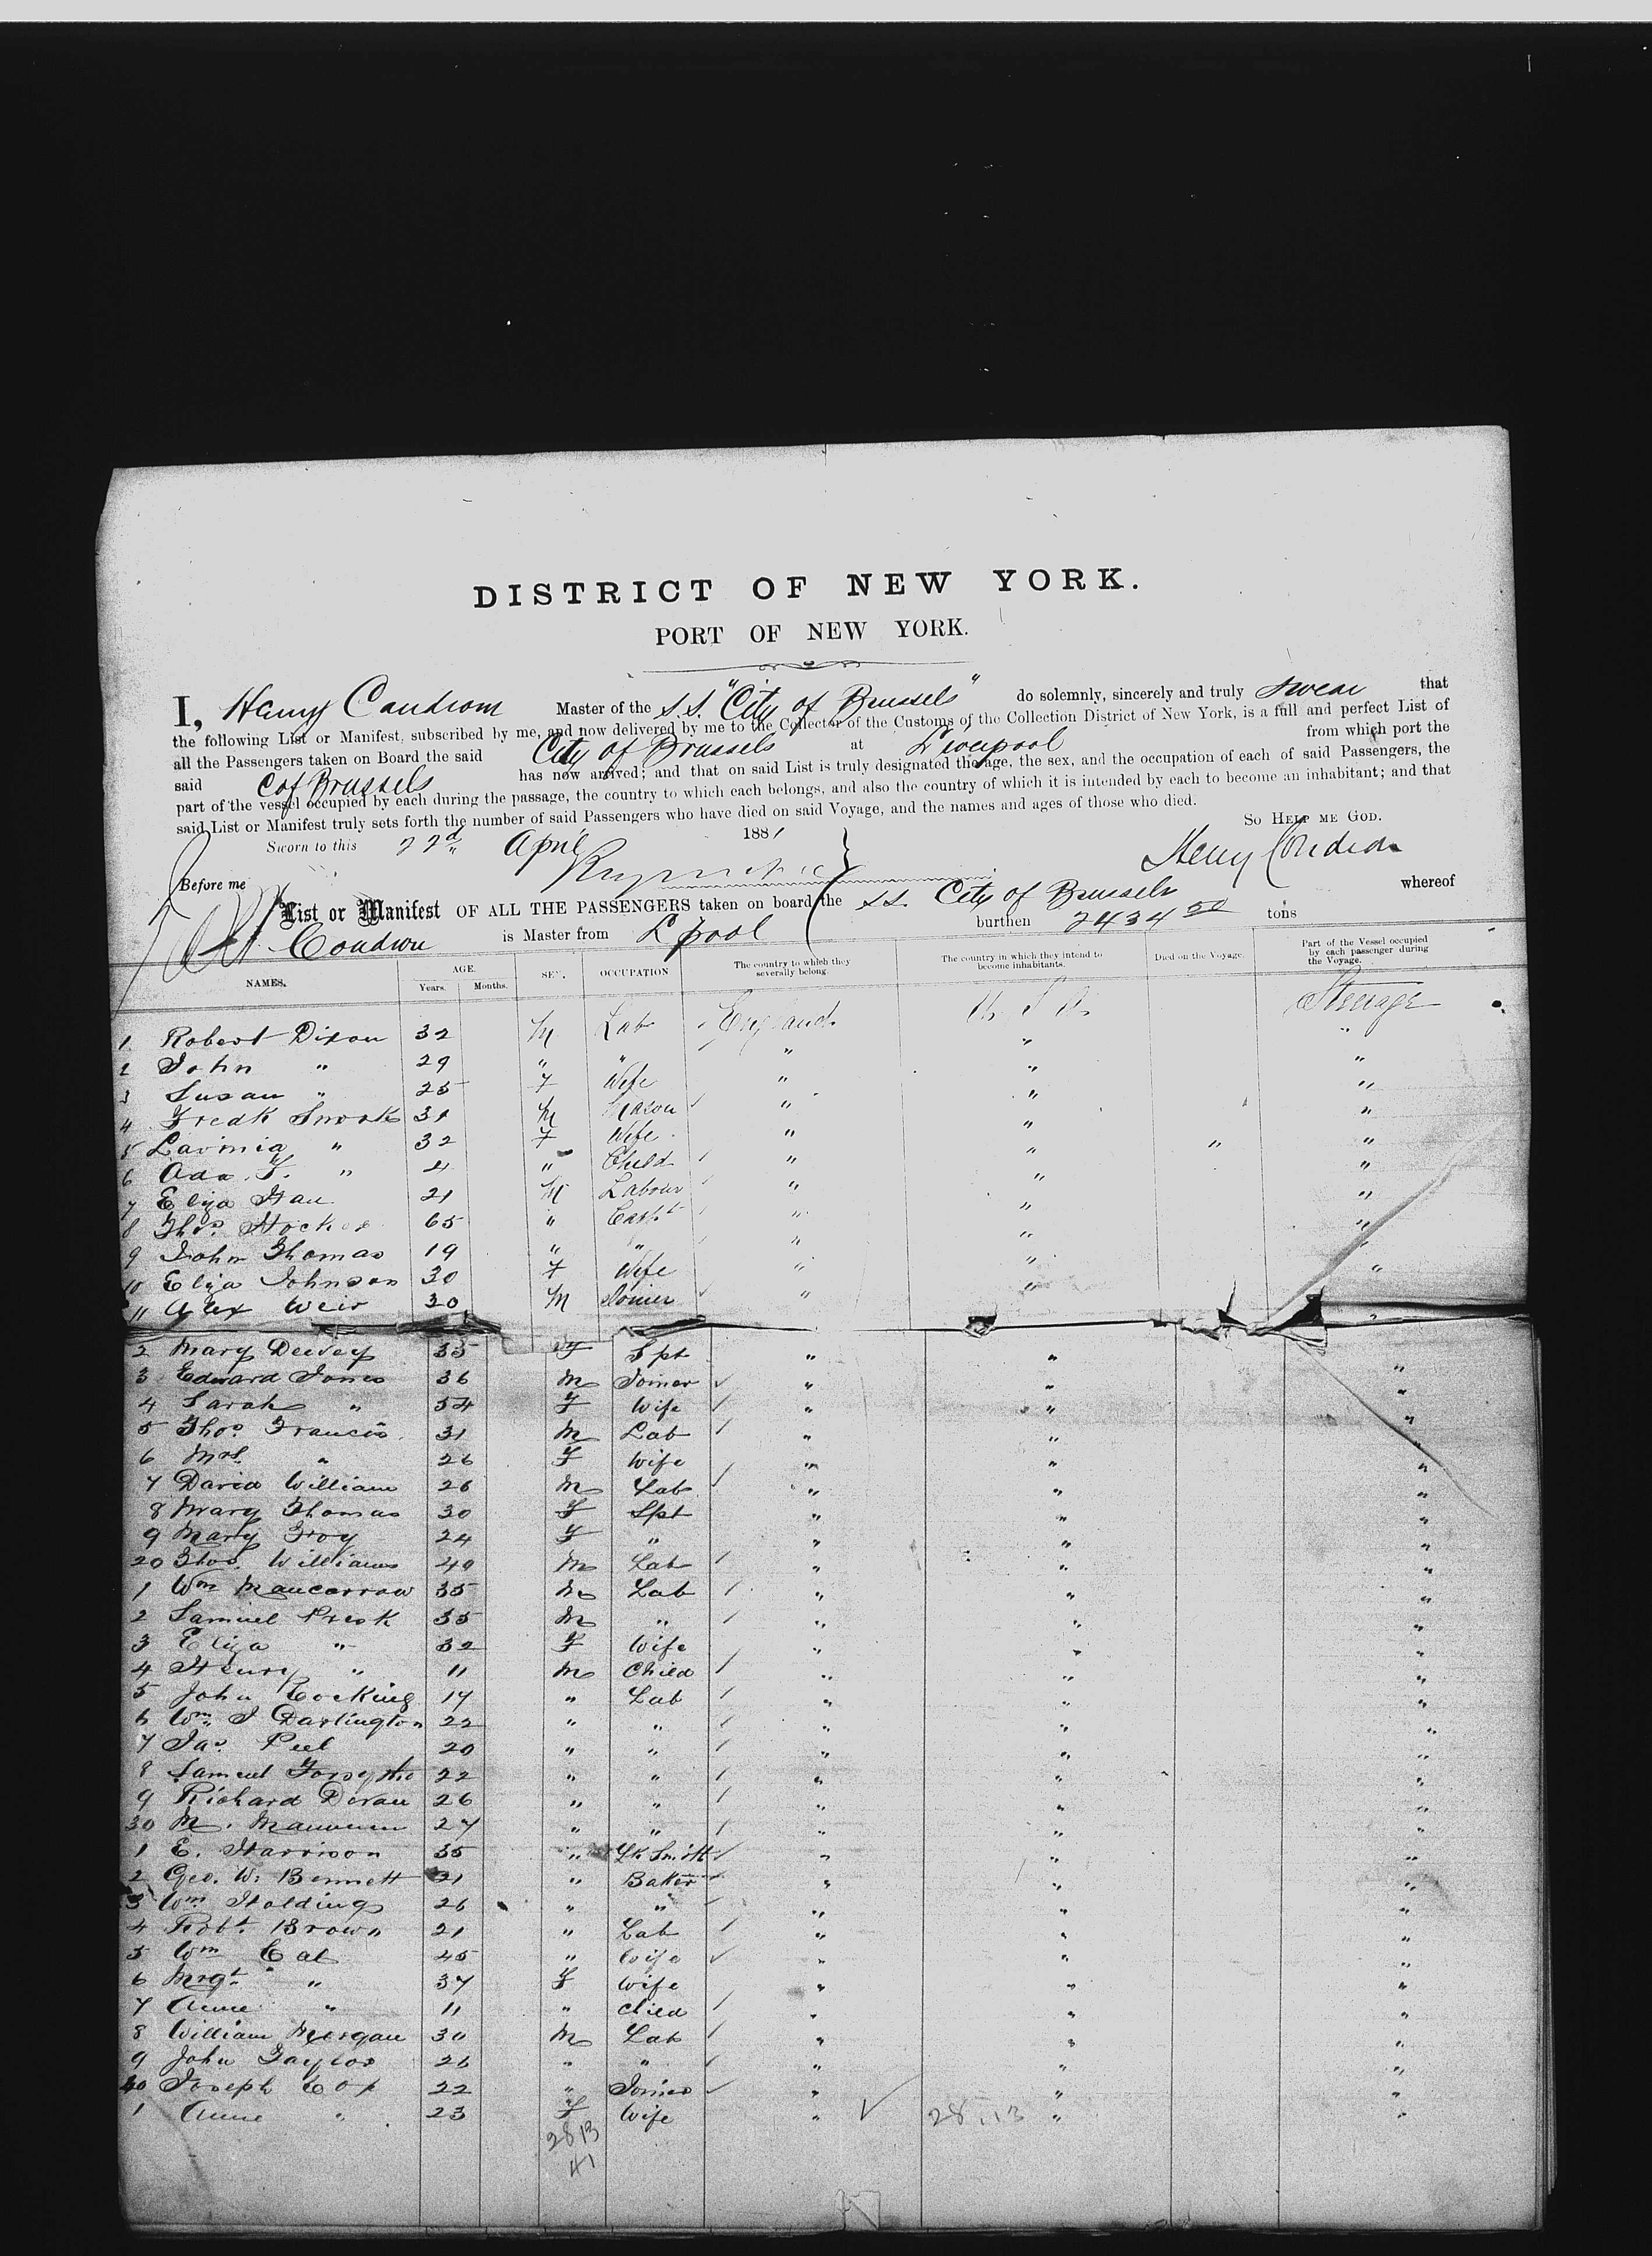 DISTRICT OF NEW YORK.
PORT OF NEW YORK.
I, Henry Condron Master of the S.S. "City of Brussels" do solemnly, sincerely and truly swear that
the following List or Manifest, subscribed by me, and now delivered by me to the Collector of the Customs of the Collection District of New York, is a full and perfect List of
all the Passengers taken on Board the said City of Brussels at Liverpool from which port the
said C of Brussels has now arrived; and that on said List is truly designated the age, the sex, and the occupation of each of said Passengers, the
part of the vessel occupied by each during the passage, the country to which each belongs, and also the country of which it is intended by each to become an inhabitant; and that
said List or Manifest truly sets forth the number of said Passengers who have died on said Voyage, and the names and ages of those who died.
So Help me God.
Sworn to this 22d April 1881
Before me
List or Manifest OF ALL THE PASSENGERS taken on board the S.S. City of Brussels whereof
is Master from L'pool burthen 2434 50 tons
NAMES. AGE. Years. Months. SEX. OCCUPATION The country to which they severally belong. The country in which they intend to become inhabitants. Died on the Voyage. Part of the Vessel occupied by each passenger during the Voyage.
1 Robert Dixon 32 M Lab England U S A Steerage
2 John " 29 " " " " "
3 Susan " 25 F Wife " " "
4 Fredk Snook 31 M Mason " " "
5 Lavinia " 32 F Wife " " " "
6 Ada F. " 4 " Child " " "
7 Eliza 21 M Labour " " "
8 Thos. 65 " " " "
9 John Thomas 19 " " " " "
10 Eliza Johnson 30 F Wife " " "
11 Alex Weir 30 M Joiner " " "
2 Mary 35 F Spt " " "
3 Edward Jones 36 M Joiner " " "
4 Sarah " 54 F Wife " " "
5 Thos. Francis 31 M Lab " " "
6 Mrs. " 26 F Wife " " "
7 David William 26 M Lab " " "
8 Mary Thomas 30 F Spt " " "
9 Mary 24 F " " " "
20 Thos. Williams 40 M Lab " " "
1 Wm 35 M Lab " " "
2 Samuel 35 M " " " "
3 Eliza " 32 F Wife " " "
4 Henry " 11 M Child " " "
5 John Cocking 17 " Lab " " "
6 Wm. J Darlington 22 " " " " "
7 Jas. Peel 20 " " " " "
8 Samuel Forsythe 22 " " " " "
9 Richard Doran 26 " " " " "
30 M. 27 " " " " "
1 E. Harrison 35 " " " "
2 Geo. W. Bennett 21 " Baker " " "
3 Wm. Holding 26 " " " " "
4 Robt. Brown 21 " Lab " " "
5 Wm 45 " Wife " " "
6 Mrgt. " 37 F Wife " " "
7 Anne " 11 " Child " " "
8 William Morgan 30 M Lab " " "
9 John Taylor 26 " " " " "
40 Joseph Cox 22 " Joiner " " "
1 Anne " 23 F Wife " 28.13 " "
28 13
41